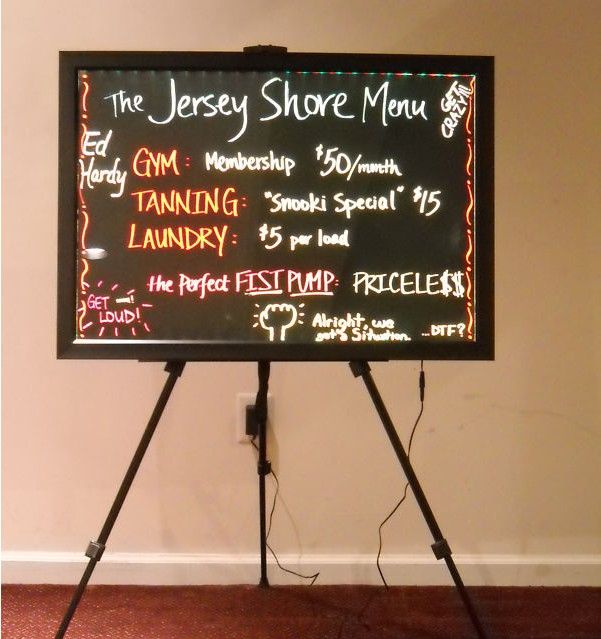 The Jersey Shore Menu
GET CRAZY!!!
Ed
Hardy
GYM: Membership $50/month
TANNING: "Snooki Special" $15
LAUNDRY: $5 per load
the Perfect FIST PUMP: PRICELE$$
GET
LOUD!
Alright, we
got a Situation.
...DTF?